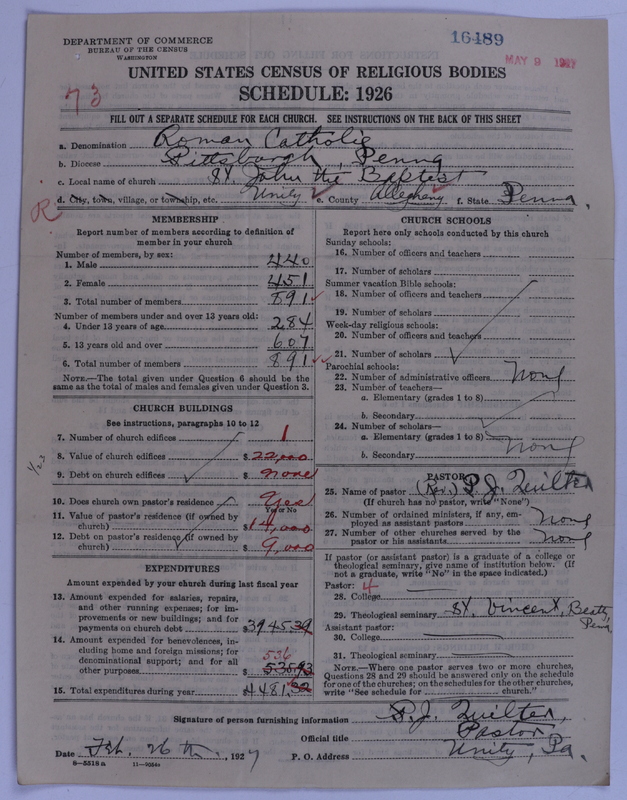 DEPARTMENT OF COMMERCE
BUREAU OF THE CENSUS
WASHINGTON
16489
MAY 9 1927
UNITED STATES CENSUS OF RELIGIOUS BODIES
SCHEDULE: 1926
73
FILL OUT A SEPARATE SCHEDULE FOR EACH CHURCH. SEE INSTRUCTIONS ON THE BACK OF THIS SHEET
a. Denomination Roman Catholic
b. Diocese Pittsburgh, Penna
c. Local name of church St. John the Baptist
d. City, town, village, or township, etc. Unity e. County Allegheny f. State Penna.
R
MEMBERSHIP
Report number of members according to definition of
member in your church
Number of members, by sex:
1. Male 440
2. Female 451
3. Total number of members 891
Number of members under and over 13 years old:
4. Under 13 years of age 284
5. 13 years old and over 607
6. Total number of members 891
NOTE.—The total given under Question 6 should be
the same as the total of males and females given under Question 3.
CHURCH BUILDINGS
See instructions, paragraphs 10 to 12
7. Number of church edifices 1
8. Value of church edifices $ 22,000
9. Debt on church edifices $ none
10. Does church own pastor's residence Yes
Yes or No
11. Value of pastor's residence (if owned by
church) $ 14,000
12. Debt on pastor's residence (if owned by
church) $ 9,000
EXPENDITURES
Amount expended by your church during last fiscal year
13. Amount expended for salaries, repairs,
and other running expenses; for im-
provements or new buildings; and for
payments on church debt $ 3945.39
14. Amount expended for benevolences, in-
cluding home and foreign missions; for
denominational support; and for all
other purposes $ 535.93
536
15. Total expenditures during year $ 4481.32
CHURCH SCHOOLS
Report here only schools conducted by this church
Sunday schools:
16. Number of officers and teachers
17. Number of scholars
Summer vacation Bible schools:
18. Number of officers and teachers
19. Number of scholars
Week-day religious schools:
20. Number of officers and teachers
21. Number of scholars
Parochial schools:
22. Number of administrative officers None
23. Number of teachers—
a. Elementary (grades 1 to 8)
b. Secondary
24. Number of scholars—
a. Elementary (grades 1 to 8) None
b. Secondary
PASTOR
25. Name of pastor (Rev.) P. J. Quilter
(If church has no pastor, write "None")
26. Number of ordained ministers, if any, em-
ployed as assistant pastors None
27. Number of other churches served by the
pastor or his assistants None
If pastor (or assistant pastor) is a graduate of a college or
theological seminary, give name of institution below. (If
not a graduate, write "No" in the space indicated.)
Pastor: 4
28. College
29. Theological seminary St. Vincent, Beatty, Penna
Assistant pastor:
30. College
31. Theological seminary
NOTE.—Where one pastor serves two or more churches,
Questions 28 and 29 should be answered only on the schedule
for one of the churches; on the schedules for the other churches,
write "See schedule for church."
Signature of person furnishing information P. J. Quilter,
Official title Pastor
Date Feb. 26th, 1927 P. O. Address Unity, Pa.
8—5518a 11—9054a